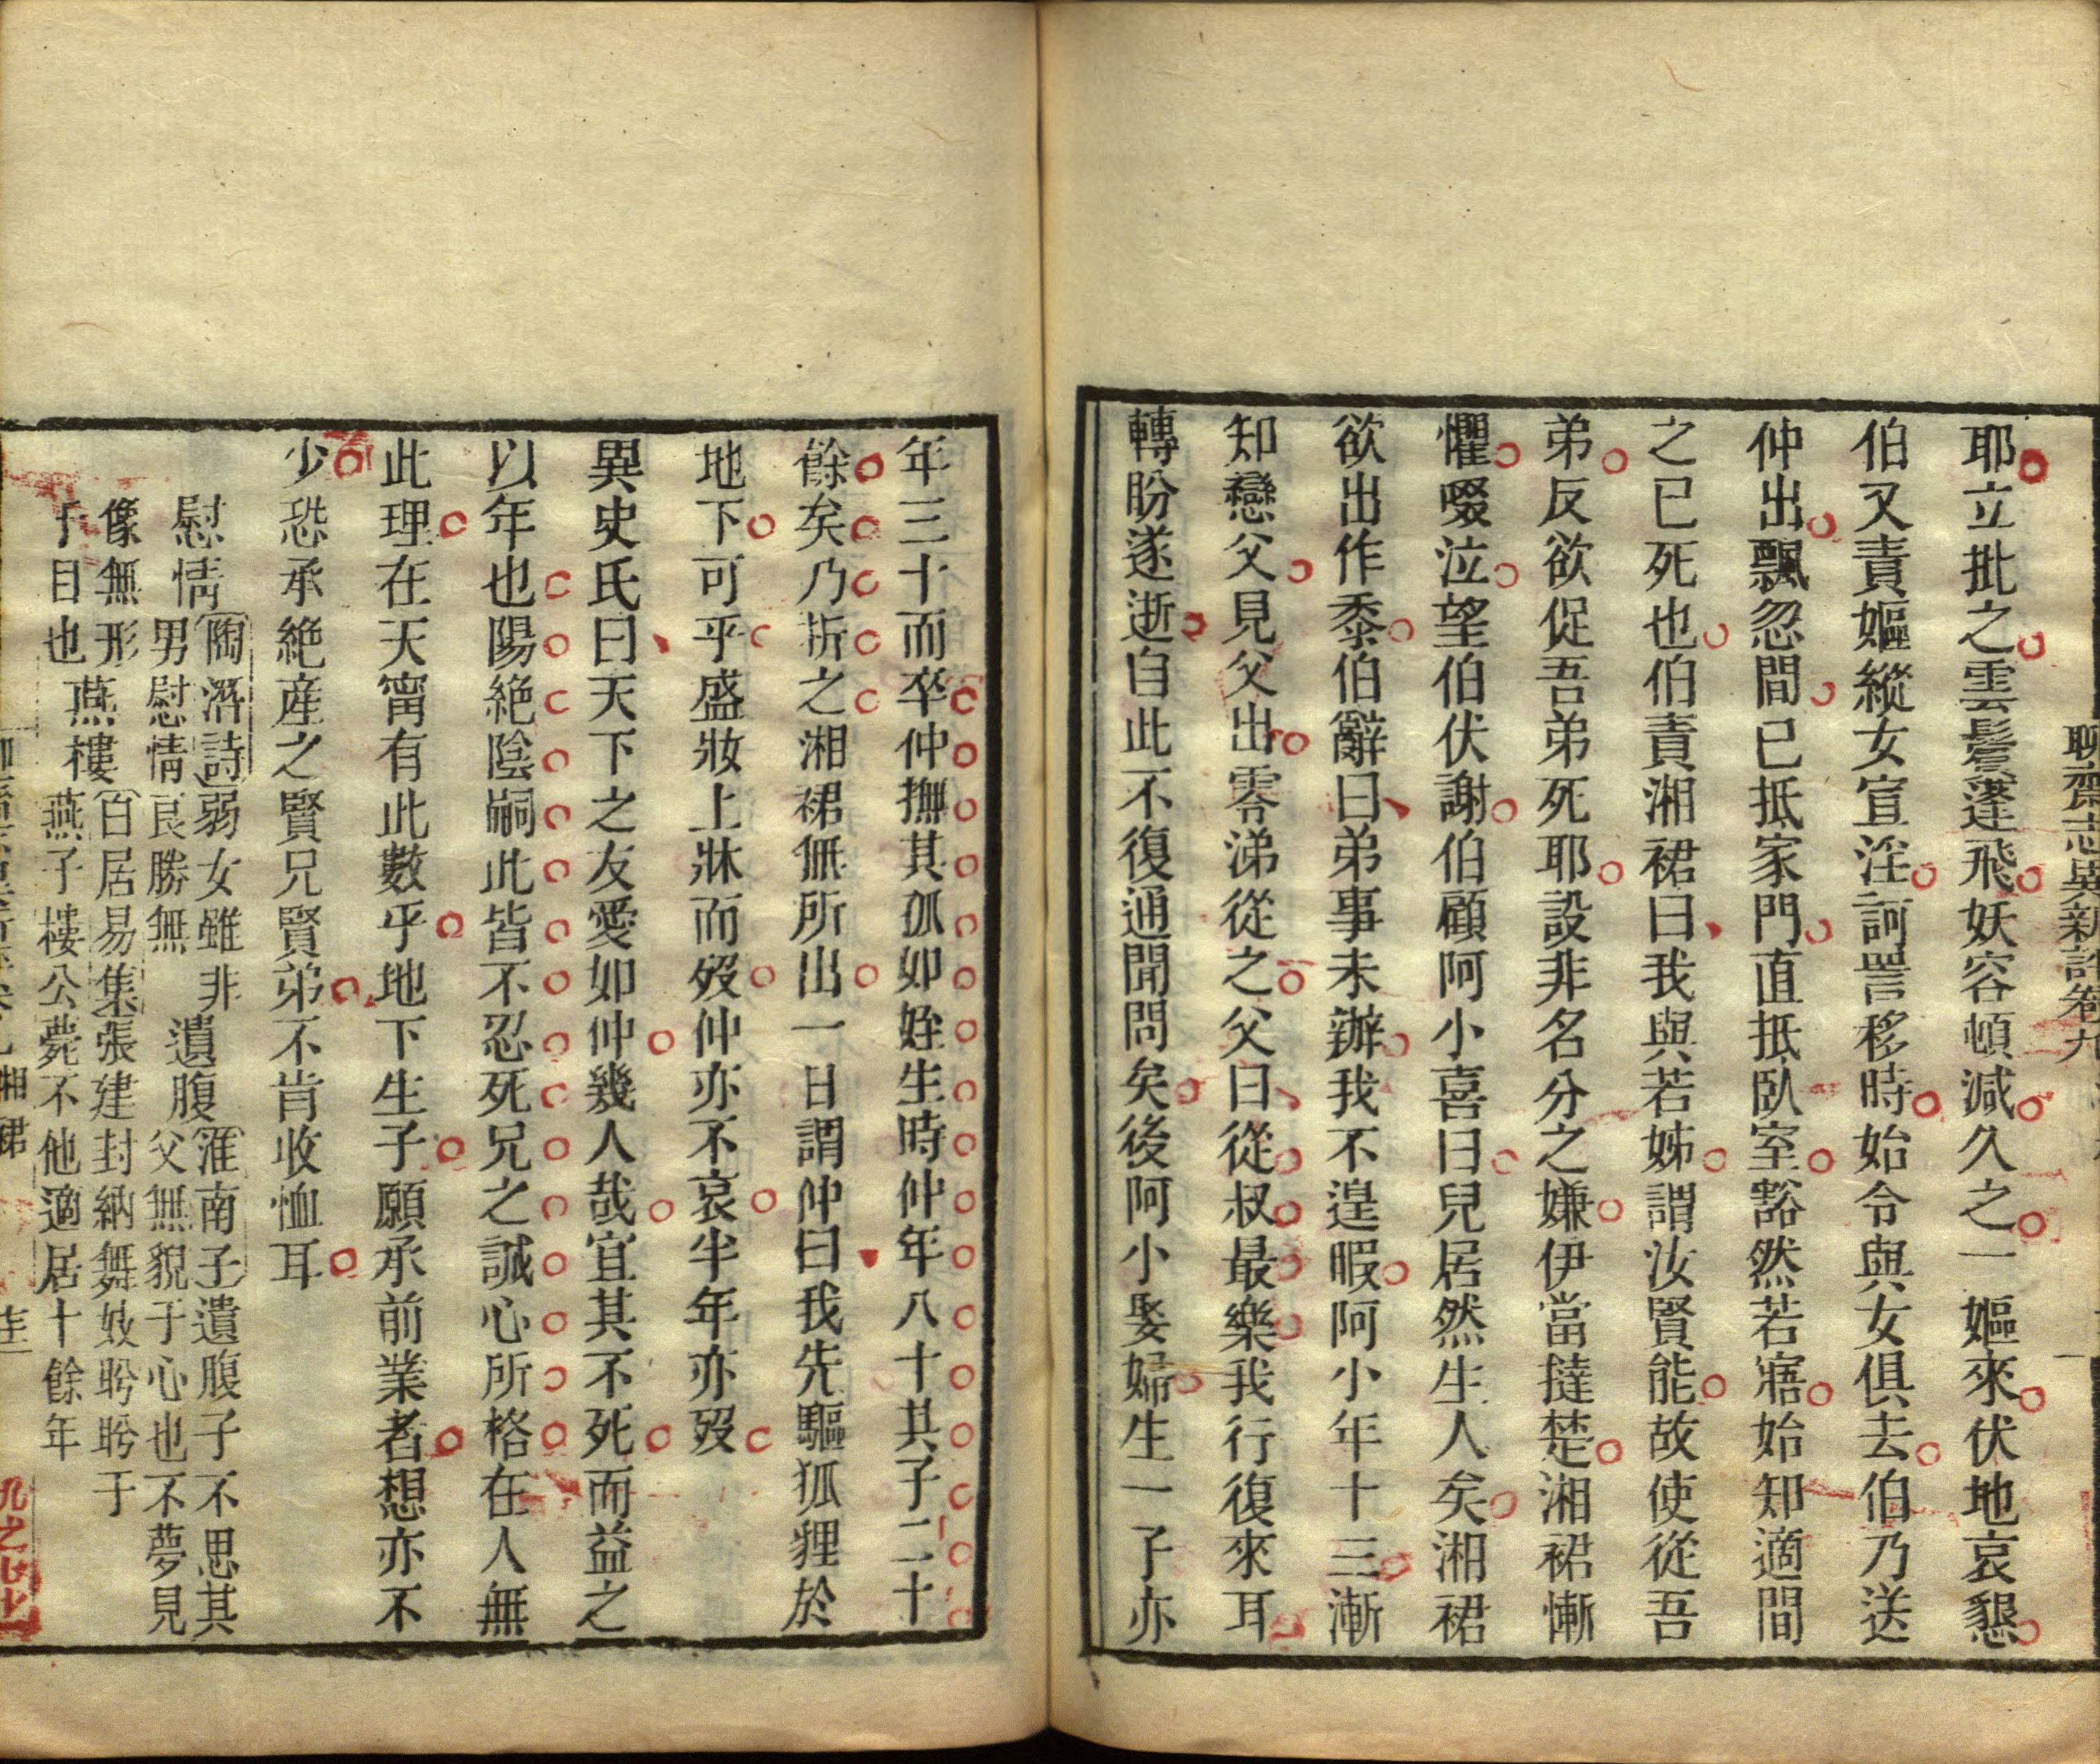 聊齋志異新評卷九
耶立批之雲鬟蓬飛妖容頓減久之一嫗來伏地哀懇
伯又責嫗縱女宣淫訶詈移時始令與女俱去伯乃送
仲出飄忽間已抵家門直抵臥室豁然若寤始知適間
之已死也伯責湘裙曰我與若姊謂汝賢能故使從吾
弟反欲促吾弟死耶設非名分之嫌伊當撻楚湘裙慚
懼啜泣望伯伏謝伯顧阿小喜曰兒居然生人矣湘裙
欲出作黍伯辭曰弟事未辦我不遑暇阿小年十三漸
知戀父見父出零涕從之父曰從叔最樂我行復來耳
轉盼遂逝自此不復通聞問矣後阿小娶婦生一子亦
年三十而卒仲撫其孤如姪生時仲年八十其子二十
餘矣乃析之湘裙無所出一日謂仲曰我先驅狐狸於
地下可乎盛妝上牀而歿仲亦不哀半年亦歿
異史氏曰天下之友愛如仲幾人哉宜其不死而益之
以年也陽絕陰嗣此皆不忍死兄之誠心所格在人無
此理在天甯有此數乎地下生子願承前業者想亦不
少恐承絕產之賢兄賢弟不肯收恤耳
慰情陶潛詩弱女雖非
男慰情良勝無
遺腹淮南子遺腹子不思其
父無貌于心也不夢見
像無形
于目也
燕樓白居易集張建封納舞妓盻盻于
燕子樓公薨不他適居十餘年
湘裙